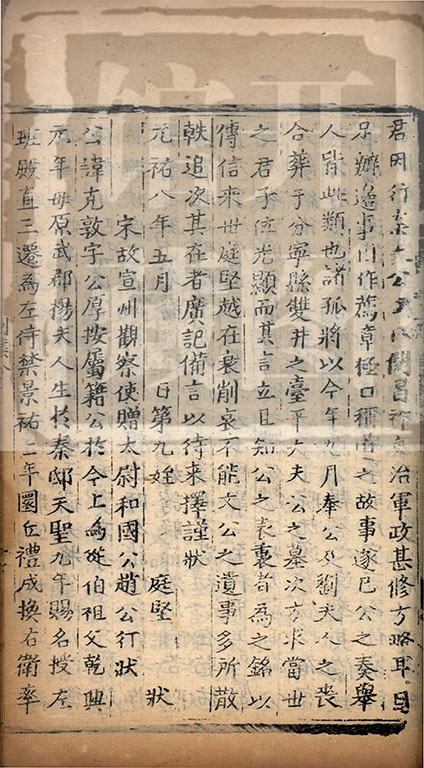 君因行 公 以 治軍政甚修方略耳目
足辦邊事 作薦章極口稱 之故事遂已公之奏舉
人皆此類也諸孤將以今年 月奉公及劉夫人之喪
合葬于分寧縣雙井之臺平大夫公之墓次方求當世
之君子位光顯而其言立且知公之表裏者為之銘以
傳信來世庭堅越在衰削哀不能文公之遺事多所散
軼追次其在者廣記備言以待来擇謹狀
元祐八年五月 日第九姪 庭堅 狀
宋故宣州觀察使贈太尉和國公趙公行狀
公諱克敦字公厚按屬籍公於今上為從伯祖父乾興
元年母原武郡楊夫人生於秦邸天聖九年賜名授左
班殿直三遷為左侍禁景祐二年圜丘禮成換右衛率